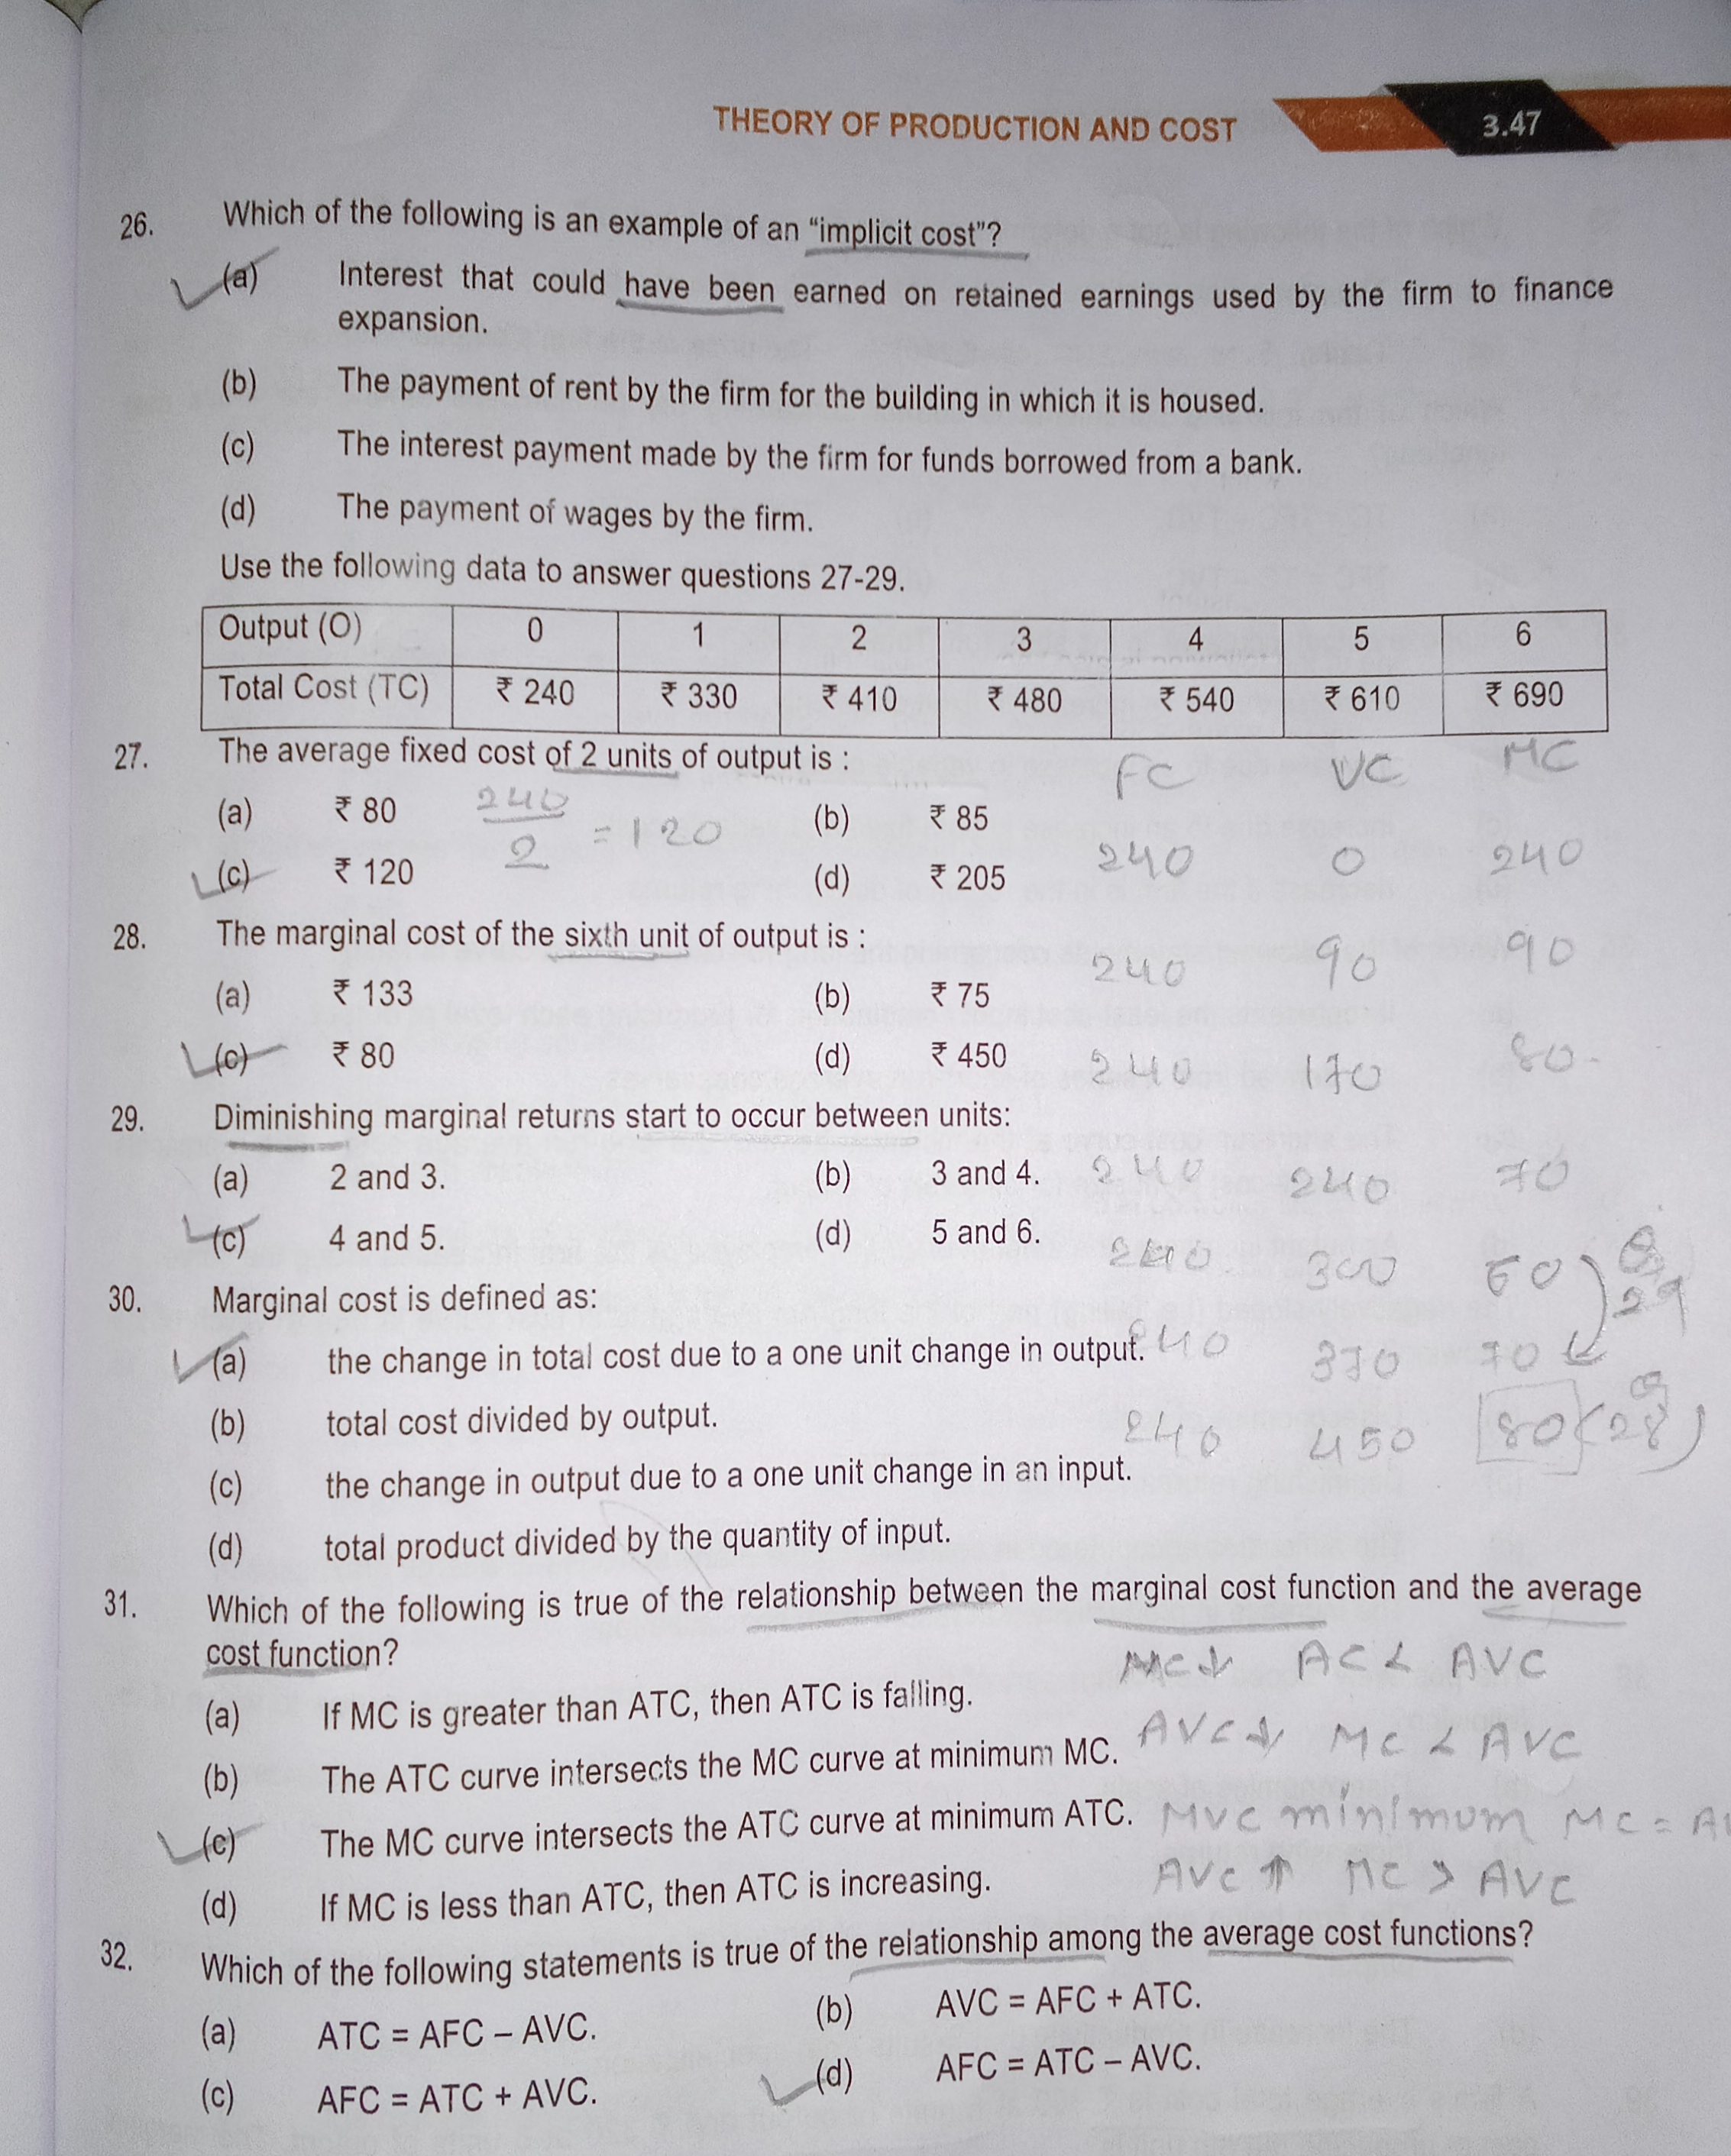 THEORY OF PRODUCTION AND COST 3.47
26. Which of the following is an example of an “implicit cost”?
(a) Interest that could have been earned on retained earnings used by the firm to finance
expansion.
(b) The payment of rent by the firm for the building in which it is housed.
(c) The interest payment made by the firm for funds borrowed from a bank.
(d) The payment of wages by the firm.
Use the following data to answer questions 27-29.
Output (O) 0 1 2 3 4 5 6
Total Cost (TC) ₹ 240 ₹ 330 ₹ 410 ₹ 480 ₹ 540 ₹ 610 ₹ 690
27. The average fixed cost of 2 units of output is :
FC VC MC
(a) ₹ 80 (b) ₹ 85
240/2 = 120
240 0 240
(c) ₹ 120 (d) ₹ 205
28. The marginal cost of the sixth unit of output is :
240 90 90
(a) ₹ 133 (b) ₹ 75
(c) ₹ 80 (d) ₹ 450
240 170 80
29. Diminishing marginal returns start to occur between units:
(a) 2 and 3. (b) 3 and 4.
240 240 70
(c) 4 and 5. (d) 5 and 6.
240 300 60 Q 29
30. Marginal cost is defined as:
(a) the change in total cost due to a one unit change in output.
240 370 70
(b) total cost divided by output.
240 450 80 (Q 28)
(c) the change in output due to a one unit change in an input.
(d) total product divided by the quantity of input.
31. Which of the following is true of the relationship between the marginal cost function and the average
cost function?
MC↓ AC < AVC
(a) If MC is greater than ATC, then ATC is falling.
AVC↓ MC < AVC
(b) The ATC curve intersects the MC curve at minimum MC.
(c) The MC curve intersects the ATC curve at minimum ATC.
MVC minimum MC = AV
(d) If MC is less than ATC, then ATC is increasing.
AVC ↑ MC > AVC
32. Which of the following statements is true of the relationship among the average cost functions?
(a) ATC = AFC – AVC. (b) AVC = AFC + ATC.
(c) AFC = ATC + AVC. (d) AFC = ATC – AVC.